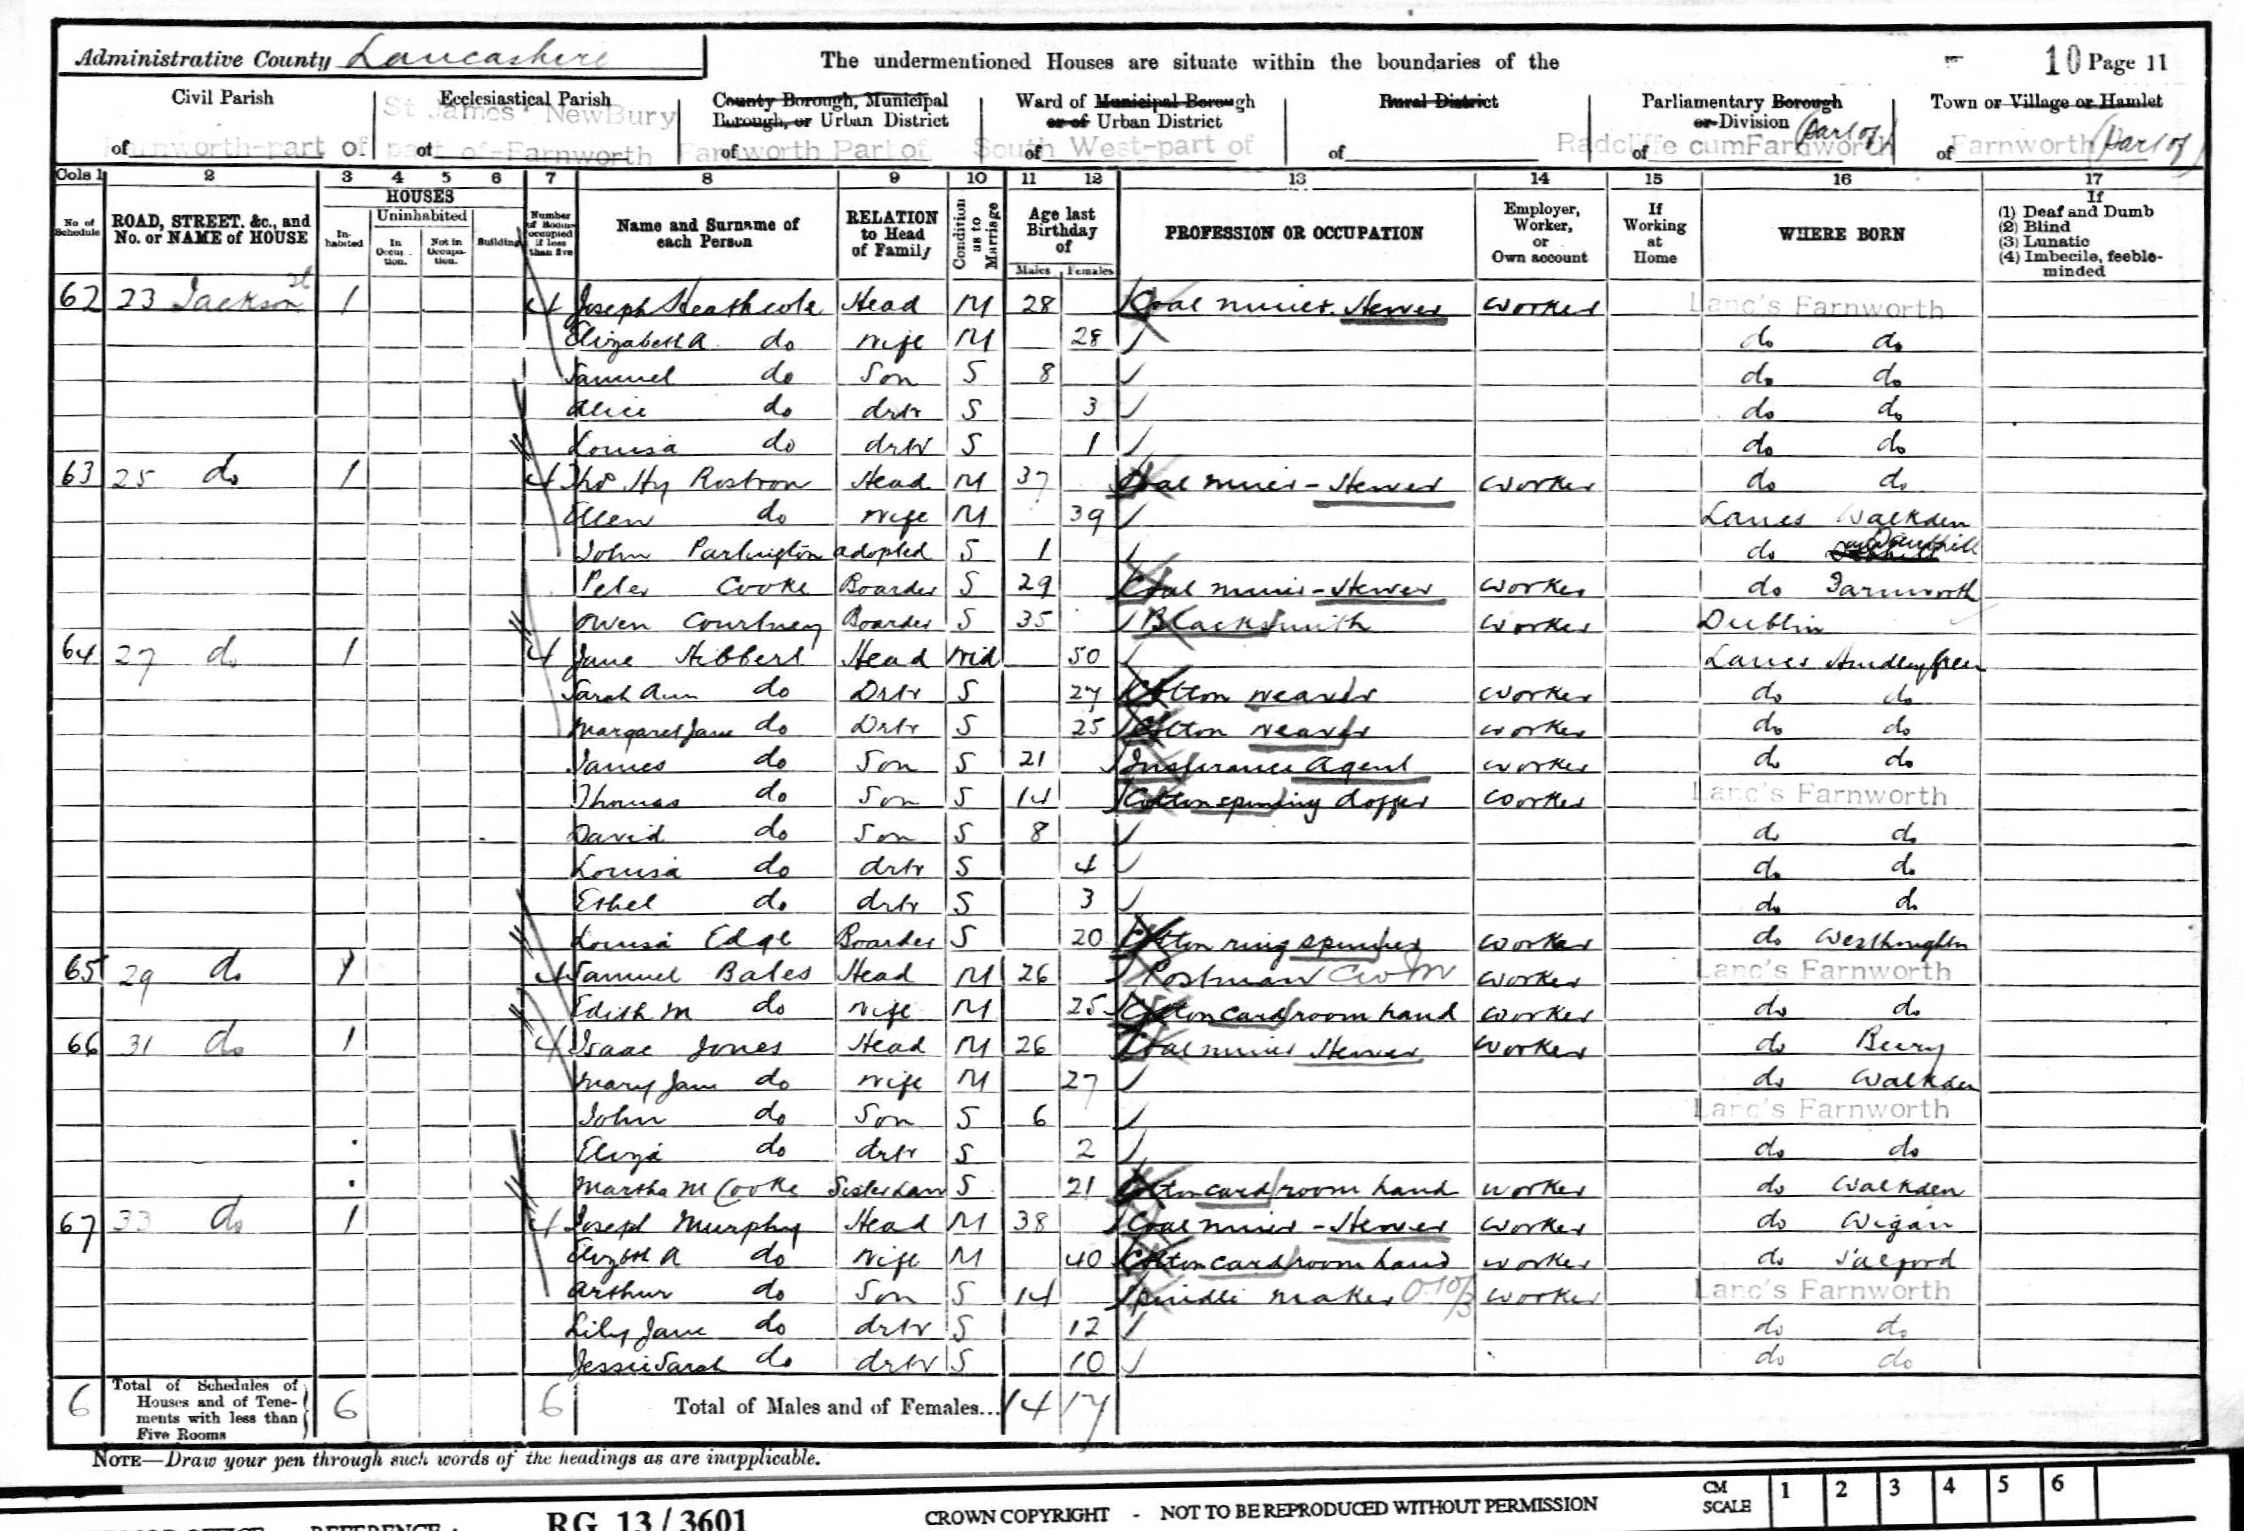 Administrative County Lancashire
The undermentioned Houses are situate within the boundaries of the
10 Page 11
Civil Parish
of Farnworth-part of
Ecclesiastical Parish
St James' NewBury
of part of-Farnworth
County Borough, Municipal
Borough, or Urban District
of Farnworth Part of
Ward of Municipal Borough
or of Urban District
of South West-part of
Rural District
of
Parliamentary Borough
or Division (part of)
of Radcliffe cum Farnworth
Town or Village or Hamlet
of Farnworth (Part of)
Cols 1 2 3 4 5 6 7 8 9 10 11 12 13 14 15 16 17
No. of Schedule
ROAD, STREET, &c., and No. or NAME of HOUSE
HOUSES
Inhabited
Uninhabited
In Occupation.
Not in Occupation.
Building
Number of Rooms occupied if less than five
Name and Surname of each Person
RELATION to Head of Family
Condition as to Marriage
Age last Birthday of
Males Females
PROFESSION OR OCCUPATION
Employer, Worker, or Own account
If Working at Home
WHERE BORN
If
(1) Deaf and Dumb
(2) Blind
(3) Lunatic
(4) Imbecile, feeble-minded
62 23 Jackson st 1 4 Joseph Heathcote Head M 28 Coal miner. Hewer worker Lanc's Farnworth
Elizabeth A do wife M 28 do do
Samuel do Son S 8 do do
Alice do drtr S 3 do do
Louisa do drtr S 1 do do
63 25 do 1 4 Thos Hy Rostron Head M 37 Coal miner - Hewer worker do do
Ellen do wife M 39 Lancs Walkden
John Partington adopted S 1 do
Peter Cooke Boarder S 29 Coal miner - Hewer worker do Farnworth
Owen Courtney Boarder S 35 Blacksmith worker Dublin
64 27 do 1 4 Jane Hibbert Head Wid 50 Lancs Hindley Green
Sarah Ann do Drtr S 27 Cotton weaver worker do do
Margaret Jane do Drtr S 25 Cotton weaver worker do do
James do Son S 21 Insurance Agent worker do do
Thomas do Son S 14 Cotton spinning doffer worker Lanc's Farnworth
David do Son S 8 do do
Louisa do drtr S 4 do do
Ethel do drtr S 3 do do
Louisa Edge Boarder S 20 Cotton ring spinner worker do Westhoughton
65 29 do 1 4 Samuel Bates Head M 26 Postman worker Lanc's Farnworth
Edith M do wife M 25 Cotton card room hand worker do do
66 31 do 1 4 Isaac Jones Head M 26 Coal miner Hewer worker do Beery
Mary Jane do wife M 27 do Walkden
John do Son S 6 Lanc's Farnworth
Eliza do drtr S 2 do do
Martha M Cooke Sister Law S 21 Cotton card room hand worker do Walkden
67 33 do 1 4 Joseph Murphy Head M 38 Coal miner - Hewer worker do Wigan
Elizbth A do wife M 40 Cotton card room hand worker do Salford
Arthur do Son S 14 Spindle maker worker Lanc's Farnworth
Lily Jane do drtr S 12 do do
Jessie Sarah do drtr S 10 do do
6 Total of Schedules of Houses and of Tenements with less than Five Rooms 6 6 Total of Males and of Females... 14 17
NOTE—Draw your pen through such words of the headings as are inapplicable.
RG 13/3601
CROWN COPYRIGHT - NOT TO BE REPRODUCED WITHOUT PERMISSION
CM SCALE 1 2 3 4 5 6